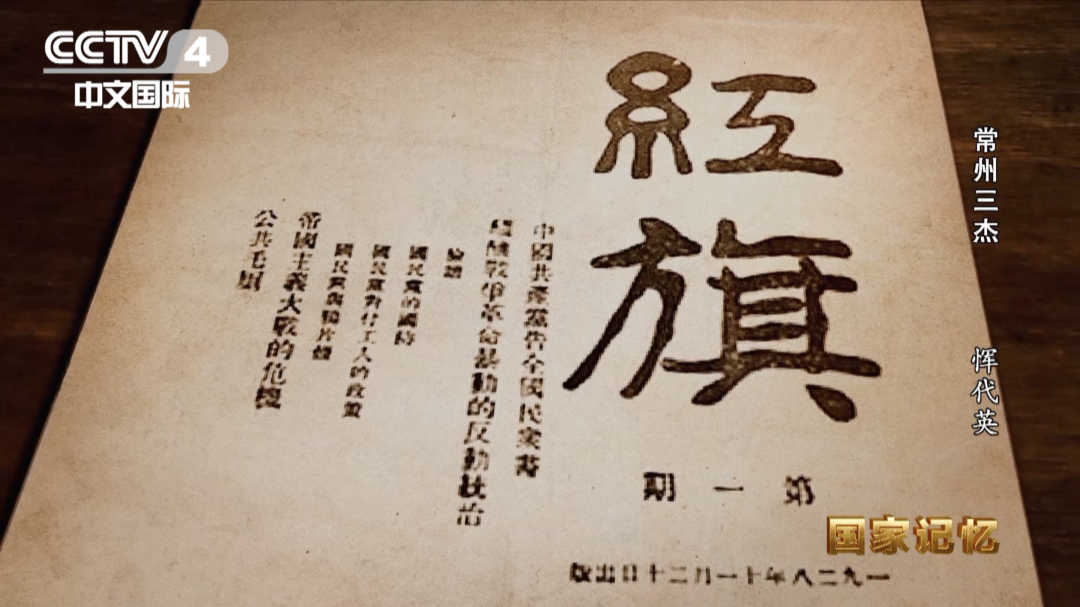 CCTV 4
中文国际
常州三杰
恽代英
紅旗
第一期
一九二八年十一月二十日出版
中國共產黨告全國民衆書
戰爭革命暴動的反動統治
國民黨的國防
國民黨對付工人的政策
國民黨與鴉片煙
帝國主義大戰的危機
公共毛厠
国家记忆